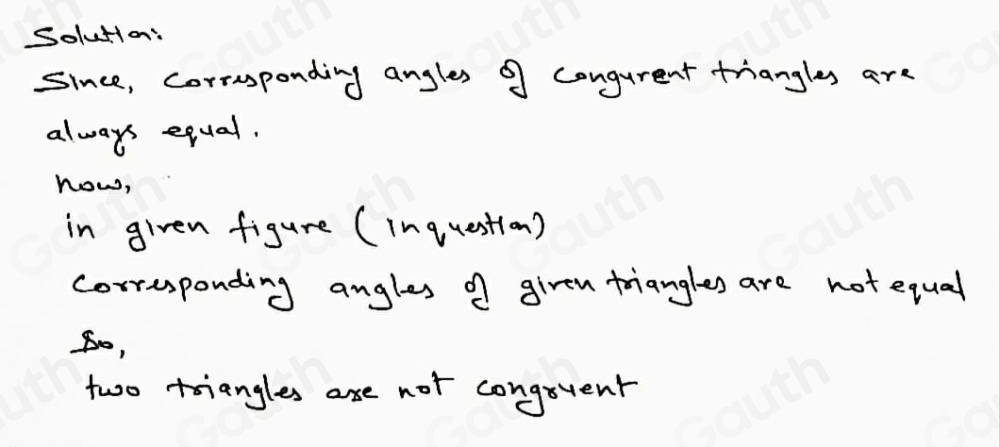 Solution:
Since, corresponding angles of congurent triangles are
always equal.
now,
in given figure (in question)
corresponding angles of given triangles are not equal
So,
two triangles are not congruent
Gauth